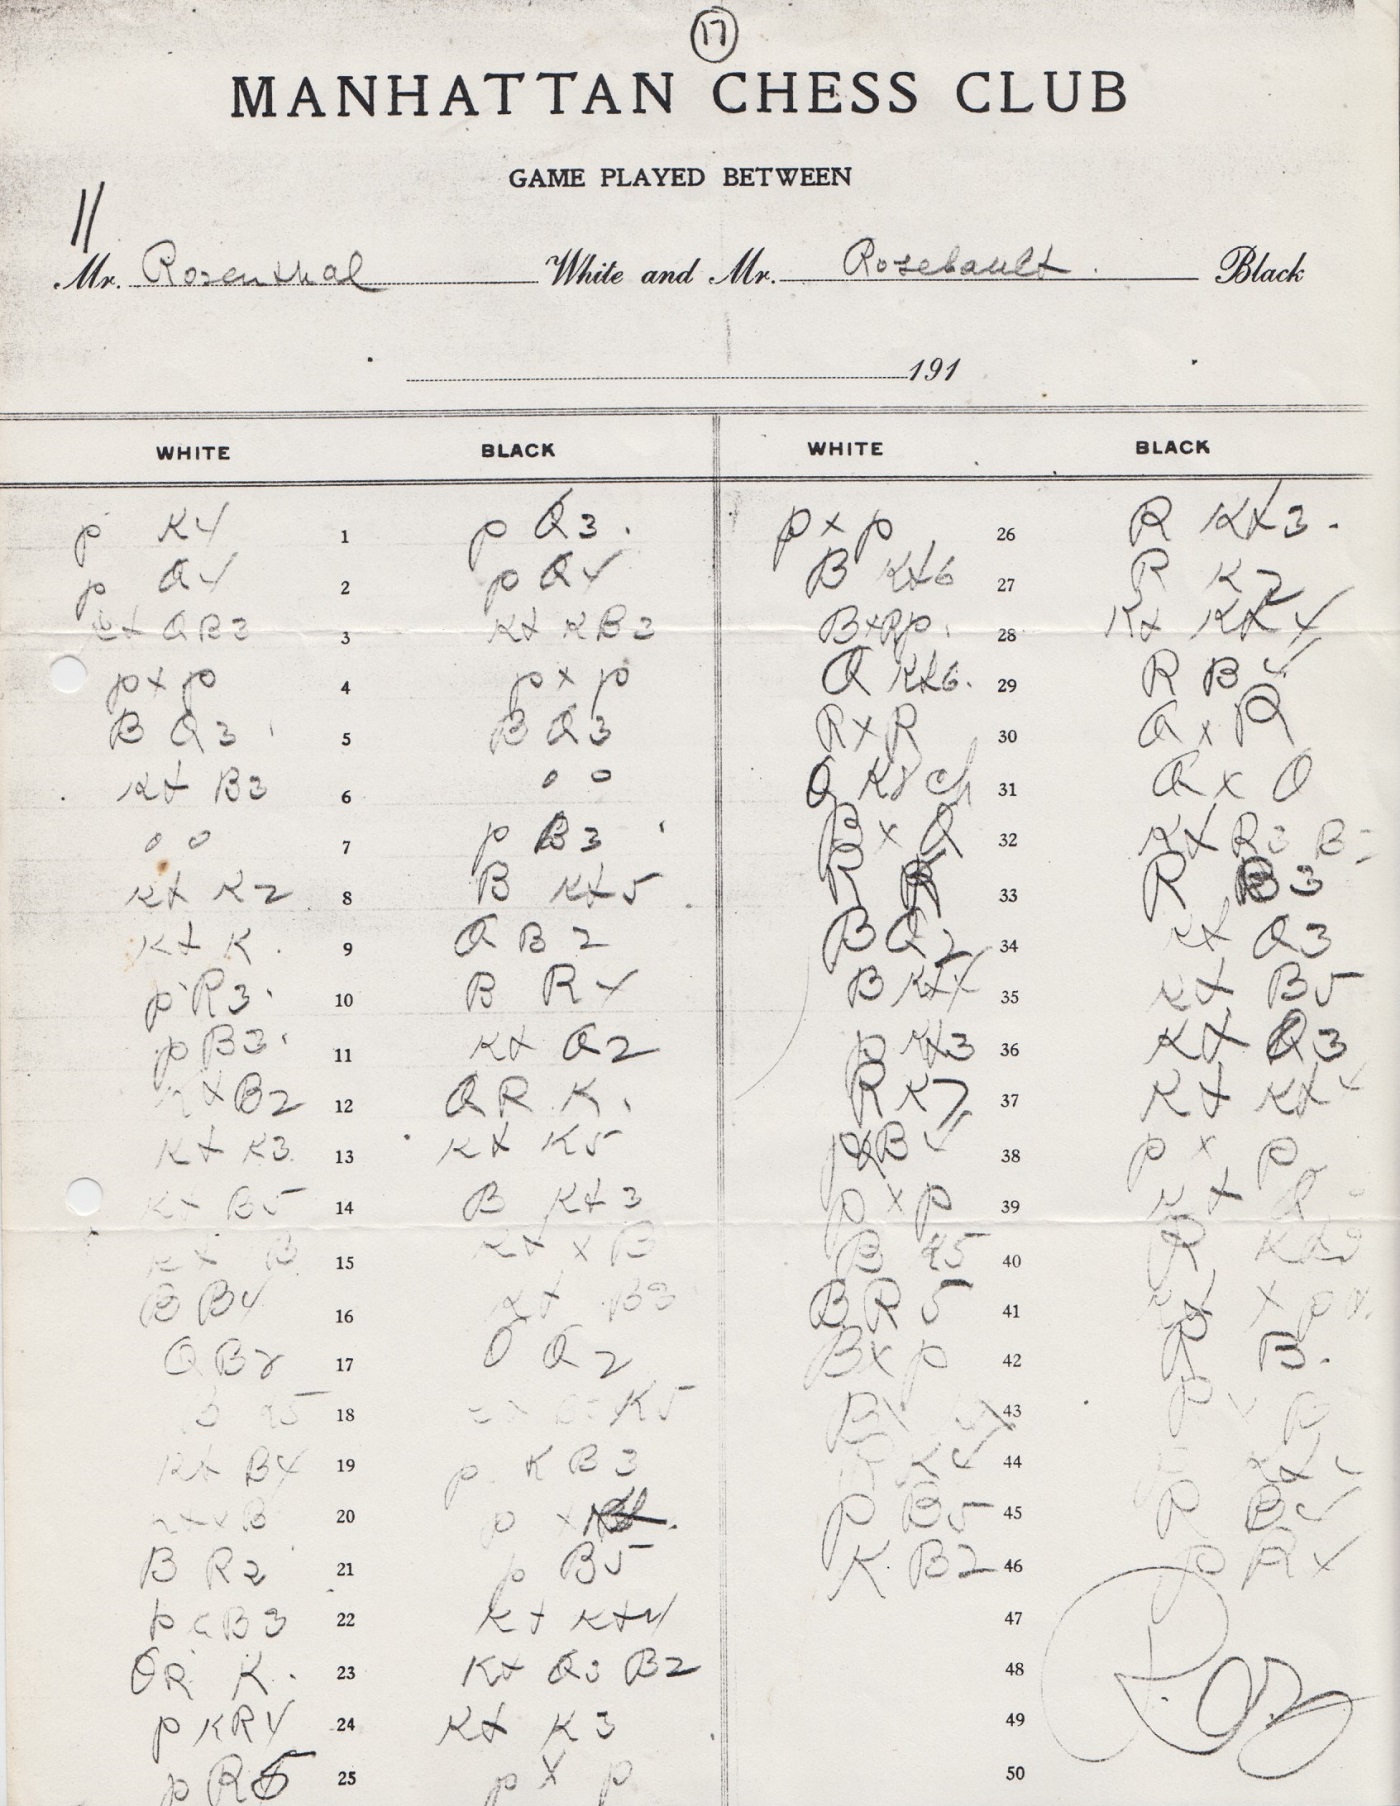 17
MANHATTAN CHESS CLUB
GAME PLAYED BETWEEN
11
Mr. Rosenthal White and Mr. Rosebault. Black
191
WHITE BLACK
p K4 1 p Q3.
p Q4 2 p Q4
Kt QB3 3 Kt KB3
p x p 4 p x p
B Q3 5 B Q3
Kt B3 6 o o
o o 7 p B3
Kt K2 8 B Kt5
Kt K. 9 Q B2
p R3. 10 B R4
p B3. 11 Kt Q2
Kt B2 12 QR K.
Kt K3. 13 Kt K5
Kt B5 14 B Kt3
Kt B 15 Kt x B
B B4 16 Kt B3
Q B2 17 Q Q2
18 K5
Kt B4 19 p KB3
20 p x
B R2 21 p B5
p QB3 22 Kt Kt4
QR K. 23 Kt Q3 B2
p KR4 24 Kt K3
p R5 25 p x p
WHITE BLACK
p x p 26 R Kt3.
B Kt6 27 R K2
B x Rp. 28 Kt Kt4
Q Kt6. 29 R B4
R x R 30 Q x R
Q K8 ch 31 Q x Q
B x Q 32 Kt R3
R K 33 R B3
B Q2 34 Kt Q3
B Kt4 35 Kt B5
p Kt3 36 Kt Q3
R K7 37 Kt Kt4
p B4 38 p x p
p x p 39 Kt
B 5 40 R
B R5 41 x p
B x p 42 R B.
B 43 p x p
R K4 44
p B5 45 R B4
K. B2 46 p R4
47
48
49
50
Roz